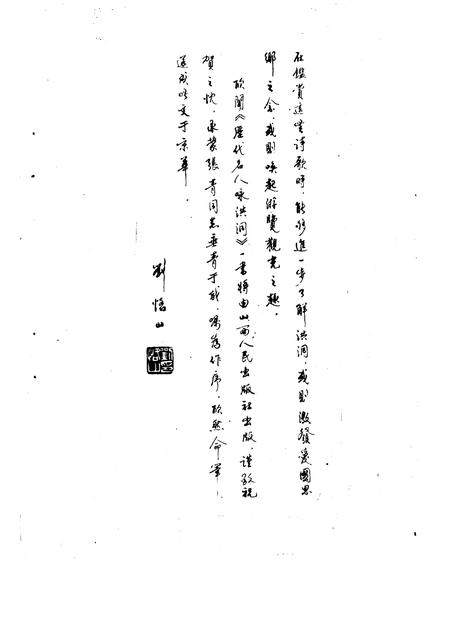 在鑑賞這些詩歌時，能夠進一步了解洪洞，或則激發愛國思
鄉之念，或則喚起游覽觀光之趣。
欣聞《歷代名人咏洪洞》一書將由山西人民出版社出版，謹致祝
賀之忱，承蒙張青同志垂青于我，囑為作序，欣然命筆，
遂成此文于京華。
劉恪山